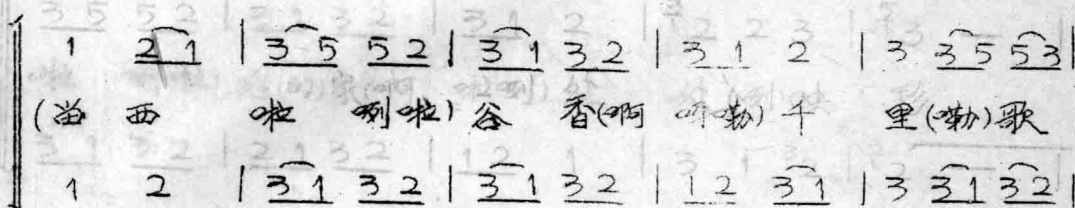 1 2 1 | 3 5 5 2 | 3 1 3 2 | 3 1 2 | 3 3 5 5 3 |
(当 西 啦 咧啦) 谷 香(啊 呀嘞) 千 里(嘞)歌
1 2 | 3 1 3 2 | 3 1 3 2 | 1 2 3 1 | 3 3 1 3 2 |